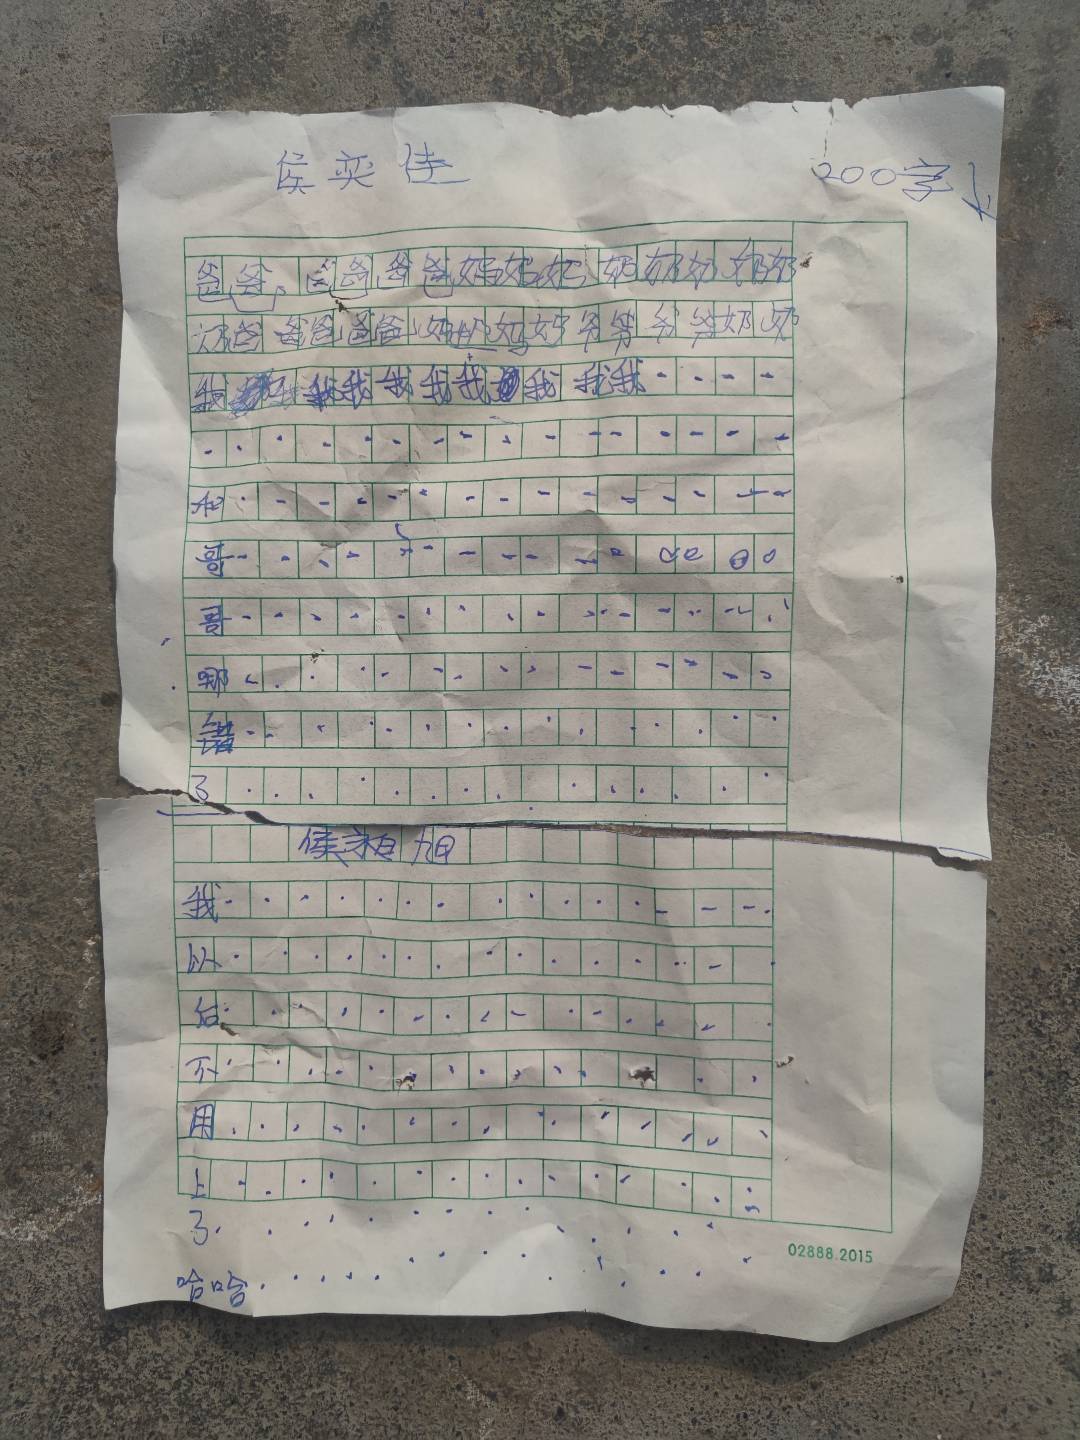 侯奕佳 200字
爸爸。爸爸爸爸妈妈妈奶奶奶奶奶
爸爸爸爸爸妈妈妈爷爷爷爷奶奶
我我我我我我我我我
和
哥
哥
哪
错
了
侯相旭
我
以
后
不
用
上
了
哈哈
02888.2015